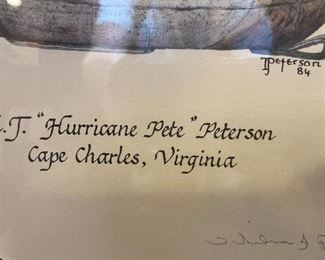 TPeterson
84
.T. "Hurricane Pete" Peterson
Cape Charles, Virginia